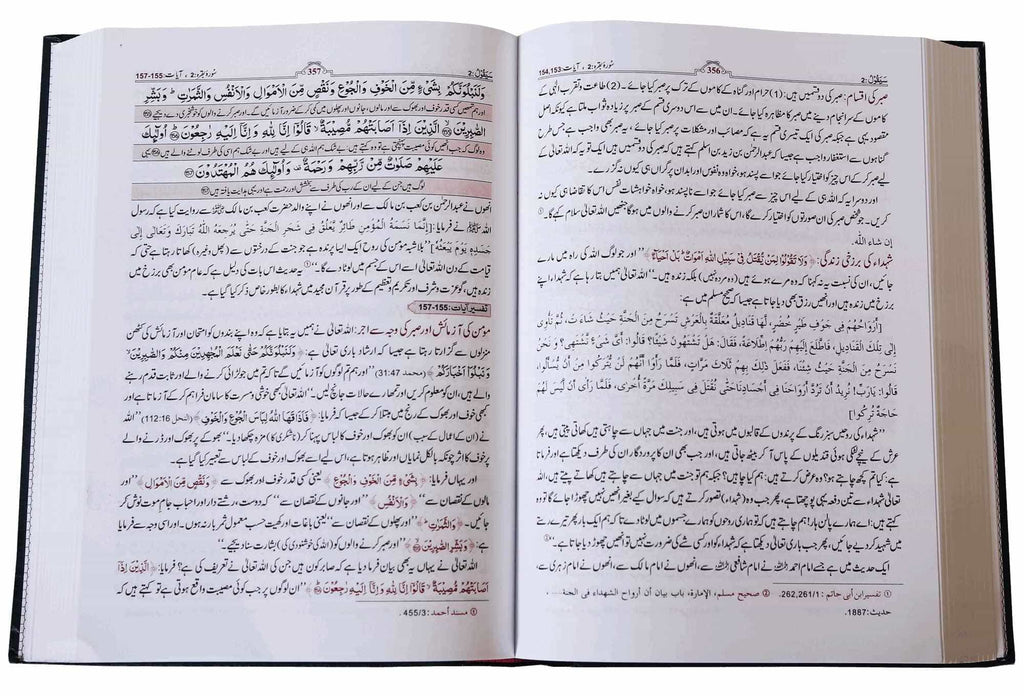 سَيَقُولُ:2
356
سُورۂ بقرہ:2 ، آیات:154,153
صبر کی اقسام: صبر کی دو قسمیں ہیں: (1) حرام اور گناہ کے کاموں کے ترک پر صبر کیا جائے۔ (2) طاعت و تقرب الٰہی کے
کاموں کے سرانجام دینے میں صبر کا مظاہرہ کیا جائے۔ ان میں سے اس دوسری قسم کے صبر پر زیادہ ثواب ملتا ہے کیونکہ اصل
مقصود یہی ہے جبکہ صبر کی ایک تیسری قسم یہ ہے کہ مصائب اور مشکلات پر صبر کیا جائے، یہ صبر بھی واجب ہے جس طرح
گناہوں سے استغفار واجب ہے جیسا کہ عبدالرحمٰن بن زید بن اسلم کہتے ہیں کہ صبر کی دو قسمیں ہیں ایک تو یہ کہ اللہ تعالیٰ کے
لیے صبر کرکے اس چیز کو اختیار کیا جائے جو اسے پسند ہو، خواہ وہ نفس اور ابدان پر گراں ہی کیوں نہ گزرے۔
اور دوسرا یہ کہ اللہ ہی کے لیے اس چیز سے صبر کیا جائے جو اسے ناپسند ہو، خواہ خواہشات نفس اس کا تقاضا ہی کیوں نہ
کریں۔ جو شخص صبر کی ان صورتوں کو اختیار کرے گا، اس کا شمار ان صبر کرنے والوں میں ہوگا جنھیں اللہ تعالیٰ سلام کہے گا۔ ①
إن شاء اللّٰه.
شہداء کی برزخی زندگی: ﴿ وَلَا تَقُوْلُوْا لِمَنْ يُّقْتَلُ فِيْ سَبِيْلِ اللّٰهِ اَمْوَاتٌ ۭ بَلْ اَحْيَآءٌ ﴾ ’’اور جو لوگ اللہ کی راہ میں مارے
جائیں، ان کی نسبت یہ نہ کہنا کہ وہ مرے ہوئے ہیں (وہ مردہ نہیں) بلکہ زندہ ہیں۔‘‘ اللہ تعالیٰ ہمیں بتا رہا ہے کہ شہداء اپنے
برزخ میں زندہ ہیں اور انھیں رزق بھی دیا جاتا ہے جیسا کہ صحیح مسلم میں ہے:
[أَرْوَاحُهُمْ فِي جَوْفِ طَيْرٍ خُضْرٍ، لَهَا قَنَادِيلُ مُعَلَّقَةٌ بِالْعَرْشِ تَسْرَحُ مِنَ الْجَنَّةِ حَيْثُ شَاءَتْ، ثُمَّ تَأْوِي
إِلٰى تِلْكَ الْقَنَادِيلِ، فَاطَّلَعَ إِلَيْهِمْ رَبُّهُمُ اطِّلَاعَةً، فَقَالَ: هَلْ تَشْتَهُونَ شَيْئًا؟ قَالُوا: أَيَّ شَيْءٍ نَشْتَهِي؟ وَنَحْنُ
نَسْرَحُ مِنَ الْجَنَّةِ حَيْثُ شِئْنَا، فَفَعَلَ ذٰلِكَ بِهِمْ ثَلَاثَ مَرَّاتٍ، فَلَمَّا رَأَوْا أَنَّهُمْ لَنْ يُتْرَكُوا مِنْ أَنْ يُسْأَلُوا،
قَالُوا: يَارَبِّ! نُرِيدُ أَنْ تَرُدَّ أَرْوَاحَنَا فِي أَجْسَادِنَا حَتّٰى نُقْتَلَ فِي سَبِيلِكَ مَرَّةً أُخْرٰى، فَلَمَّا رَأٰى أَنْ لَيْسَ لَهُمْ
حَاجَةٌ تُرِكُوا]
’’شہداء کی روحیں سبز رنگ کے پرندوں کے قالبوں میں ہوتی ہیں، اور جنت میں جہاں سے چاہتی ہیں کھاتی پیتی ہیں، پھر
عرش کے نیچے لٹکی ہوئی قندیلوں کے پاس آ کر بیٹھ جاتی ہیں، اور جب بھی ان کا پروردگار ان کی طرف سے دیکھتا ہے اور فرماتا
ہے: کیا تم کچھ چاہتے ہو؟ وہ عرض کرتے ہیں: ہم کیا چاہیں؟ جبکہ ہم تو جنت میں جہاں سے چاہتے کھاتے پیتے ہیں، اللہ
تعالیٰ شہداء سے تین دفعہ یہی پوچھتا ہے، پھر جب وہ (شہداء) تصور کرتے ہیں کہ سوال کیے بغیر انھیں نہیں چھوڑا جائے گا تو وہ
کہتے ہیں: اے ہمارے پالن ہار! ہم چاہتے ہیں کہ تو ہماری روحوں کو ہمارے جسموں میں لوٹا دے تاکہ ہم ایک بار پھر تیرے رستے
میں شہید کر دیے جائیں، پھر جب باری تعالیٰ دیکھتا ہے کہ شہداء کو اور کسی شے کی ضرورت نہیں تو انھیں چھوڑ دیا جاتا ہے۔‘‘ ②
ایک حدیث میں ہے جسے امام احمد رحمہ اللہ نے امام شافعی رحمہ اللہ سے، انھوں نے امام مالک سے، انھوں نے امام زہری سے،
① تفسیر ابن أبی حاتم: 262,261/1. ② صحیح مسلم، الإمارة، باب بیان أن أرواح الشهداء فی الجنة......،
حدیث:1887.
سَيَقُولُ:2
357
سُورۂ بقرہ:2 ، آیات:157-155
وَلَنَبْلُوَنَّكُمْ بِشَيْءٍ مِّنَ الْخَوْفِ وَالْجُوْعِ وَنَقْصٍ مِّنَ الْاَمْوَالِ وَالْاَنْفُسِ وَالثَّمَرٰتِ ۭ وَبَشِّرِ
اور ہم تمھیں کسی قدر خوف اور بھوک سے اور مالوں، جانوں اور پھلوں میں کمی کر کے ضرور آزمائیں گے، اور صبر کرنے والوں کو خوشخبری دے دیجیے
الصّٰبِرِيْنَ ﴿155﴾ الَّذِيْنَ اِذَآ اَصَابَتْهُمْ مُّصِيْبَةٌ ۙ قَالُوْٓا اِنَّا لِلّٰهِ وَاِنَّآ اِلَيْهِ رٰجِعُوْنَ ﴿156﴾ اُولٰٓئِكَ
وہ لوگ کہ جب انھیں کوئی مصیبت پہنچتی ہے تو وہ کہتے ہیں: بے شک ہم اللہ ہی کے لیے ہیں اور بے شک ہم اسی کی طرف لوٹنے والے ہیں یہی
عَلَيْهِمْ صَلَوٰتٌ مِّنْ رَّبِّهِمْ وَرَحْمَةٌ ۣ وَاُولٰٓئِكَ هُمُ الْمُهْتَدُوْنَ ﴿157﴾
لوگ ہیں جن کے لیے ان کے رب کی طرف سے بخشش اور رحمت ہے اور یہی ہدایت یافتہ ہیں
انھوں نے عبدالرحمٰن بن کعب بن مالک سے اور انھوں نے اپنے والد حضرت کعب بن مالک رضی اللہ عنہ سے روایت کیا ہے کہ رسول
اللہ ﷺ نے فرمایا: [إِنَّمَا نَسَمَةُ الْمُؤْمِنِ طَائِرٌ يَعْلُقُ فِي شَجَرِ الْجَنَّةِ حَتّٰى يُرْجِعَهُ اللّٰهُ تَبَارَكَ وَتَعَالٰى إِلٰى
جَسَدِهِ يَوْمَ يَبْعَثُهُ] ’’بلاشبہ مومن کی روح ایک ایسا پرندہ ہے جو جنت کے درختوں سے (پھل وغیرہ) کھاتا رہتا ہے حتی کہ
قیامت کے دن اللہ تعالیٰ اسے اس کے جسم میں لوٹا دے گا۔‘‘① یہ حدیث اس بات کی دلیل ہے کہ عام مومن بھی برزخ میں
ہوں گے، گو عزت و شرف اور تکریم و تعظیم کے طور پر قرآن مجید میں شہداء کا بطور خاص ذکر کیا گیا ہے۔
تفسیر آیات: 157-155
مومن کی آزمائش اور صبر کی وجہ سے اجر: اللہ تعالیٰ نے ہمیں یہ بتایا ہے کہ وہ اپنے بندوں کو امتحان اور آزمائش کی کٹھن
منزلوں سے گزارتا رہتا ہے جیسا کہ ارشاد باری تعالیٰ ہے: ﴿ وَلَنَبْلُوَنَّكُمْ حَتّٰى نَعْلَمَ الْمُجٰهِدِيْنَ مِنْكُمْ وَالصّٰبِرِيْنَ ۙ
وَنَبْلُوَا۟ اَخْبَارَكُمْ ﴾ (محمد 31:47) ’’اور ہم تم لوگوں کو آزمائیں گے تا کہ تم میں جو لڑائی کرنے والے اور ثابت قدم رہنے والے
ہیں، ان کو معلوم کریں اور تمھارے حالات جانچ لیں۔‘‘ اللہ تعالیٰ کبھی خوشی و مسرت کا سامان فراہم کر کے آزماتا ہے اور
کبھی خوف اور بھوک کے رنج میں مبتلا کر کے جیسا کہ فرمایا: ﴿ فَاَذَاقَهَا اللّٰهُ لِبَاسَ الْجُوْعِ وَالْخَوْفِ ﴾ (النحل 112:16) ’’اللہ
نے (ان کے اعمال کے سبب) ان کو بھوک اور خوف کا لباس پہنا کر (ناشکری کا) مزہ چکھا دیا۔‘‘ بھوکے پر بھوک اور ڈرنے والے
پر خوف کا اثر چونکہ بالکل نمایاں اور ظاہر ہوتا ہے، اس لیے اسے بھوک اور خوف کے لباس سے تعبیر کیا گیا ہے۔
اور یہاں فرمایا: ﴿ بِشَيْءٍ مِّنَ الْخَوْفِ وَالْجُوْعِ ﴾ یعنی کسی قدر خوف اور بھوک سے ﴿ وَنَقْصٍ مِّنَ الْاَمْوَالِ ﴾ ’’اور
مالوں کے نقصان سے‘‘ ﴿ وَالْاَنْفُسِ ﴾ ’’اور جانوں کے نقصان سے‘‘ کہ دوست، رشتے دار اور احباب جام موت نوش کر
جائیں۔ ﴿ وَالثَّمَرٰتِ ۭ ﴾ ’’اور پھلوں کے نقصان سے‘‘ یعنی باغات اور کھیت حسب معمول ثمر بار نہ ہوں۔ اور اسی وجہ سے فرمایا
ہے: ﴿ وَبَشِّرِ الصّٰبِرِيْنَ ﴾ ’’اور صبر کرنے والوں کو (اللہ کی خوشنودی کی) بشارت سنا دیجیے۔‘‘
اللہ تعالیٰ نے یہاں یہ بھی بیان فرما دیا ہے کہ صابر کون ہیں جن کی اللہ تعالیٰ نے تعریف کی ہے؟ فرمایا: ﴿ الَّذِيْنَ اِذَآ
اَصَابَتْهُمْ مُّصِيْبَةٌ ۙ قَالُوْٓا اِنَّا لِلّٰهِ وَاِنَّآ اِلَيْهِ رٰجِعُوْنَ ﴾ ’’ان لوگوں پر جب کوئی مصیبت واقع ہوتی ہے تو کہتے ہیں کہ
① مسند أحمد: 455/3.